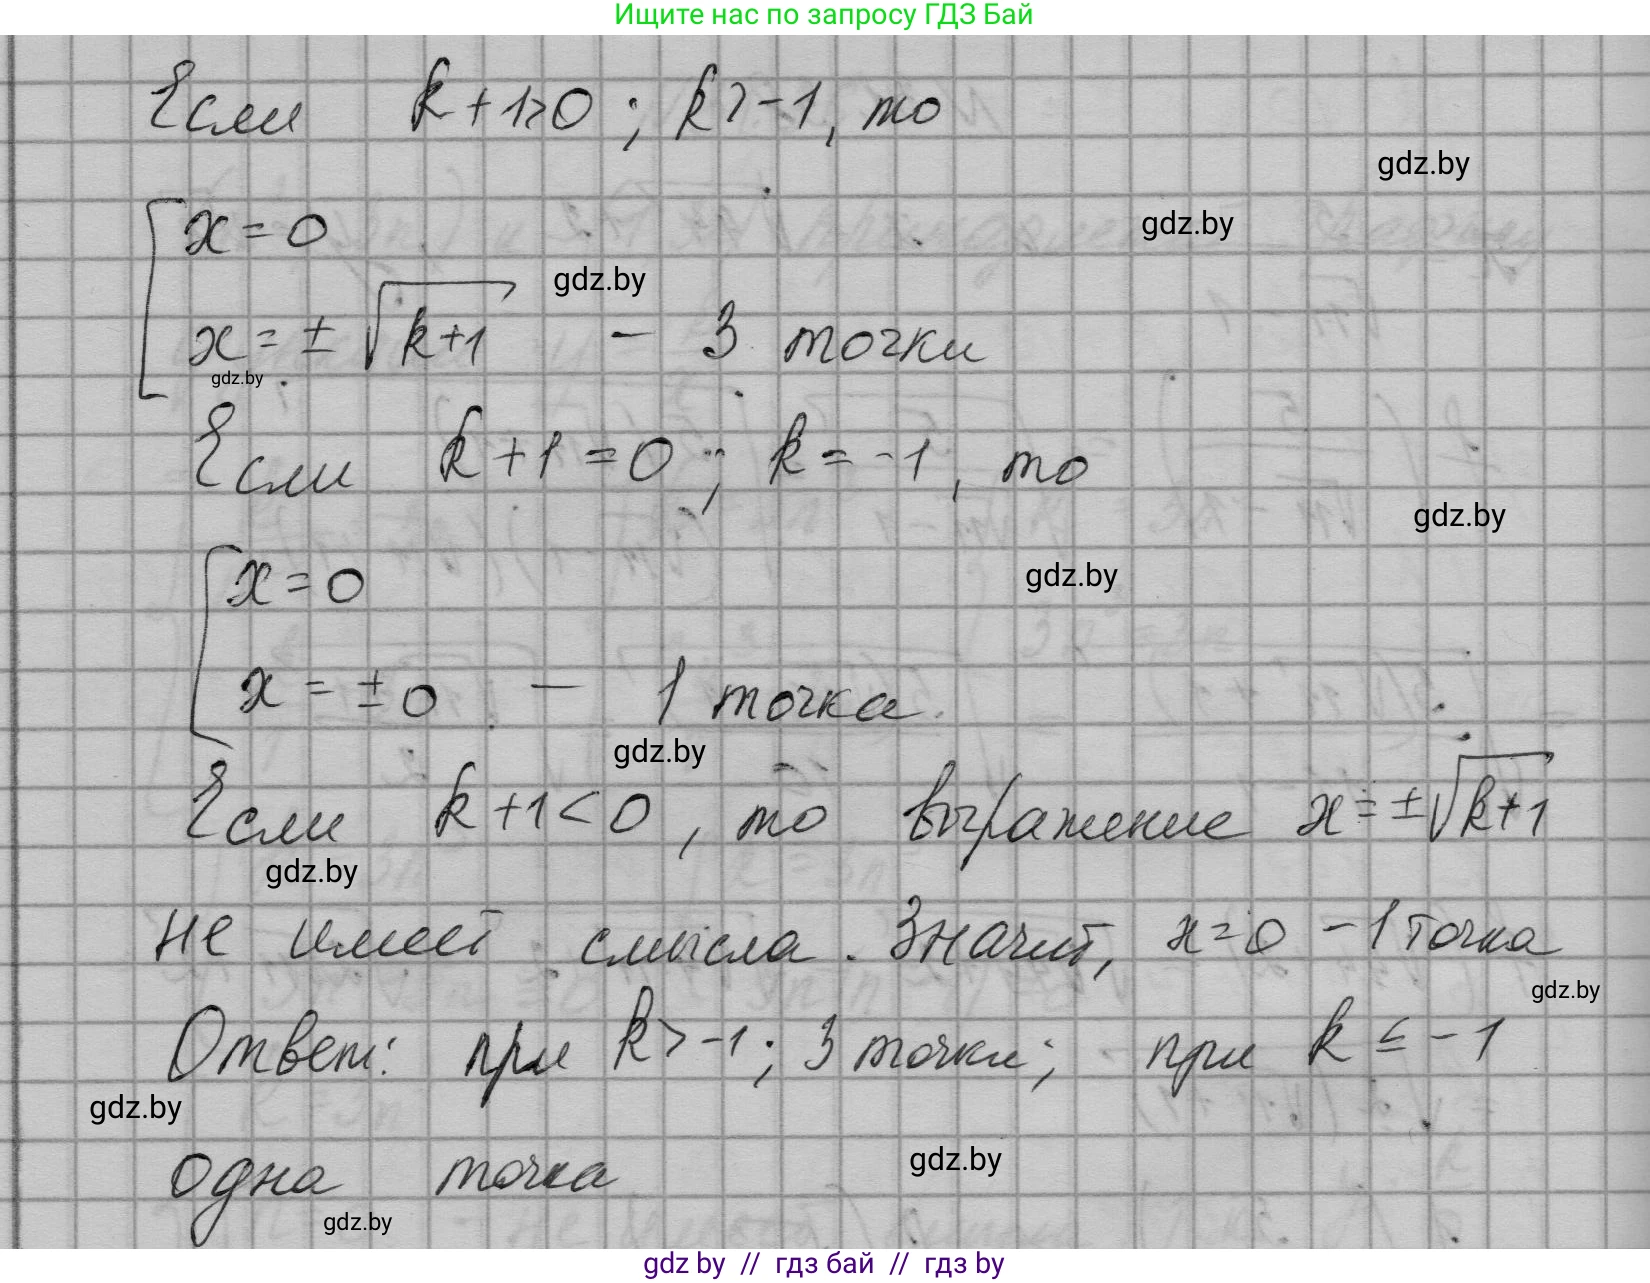 Ищите нас по запросу ГДЗ Бай
Если k+1>0 ; k>-1, то
gdz.by
x=0
gdz.by
gdz.by
x=± √k+1 – 3 точки
gdz.by
Если k+1=0; k=-1, то
gdz.by
x=0
gdz.by
x=±0 – 1 точка.
gdz.by
Если k+1<0, то выражение x=±√k+1
gdz.by
не имеет смысла. Значит, x=0 – 1 точка
gdz.by
Ответ: при k>-1; 3 точки; при k≤-1
gdz.by
одна точка
gdz.by
gdz.by
gdz by // гдз бай // гдз by